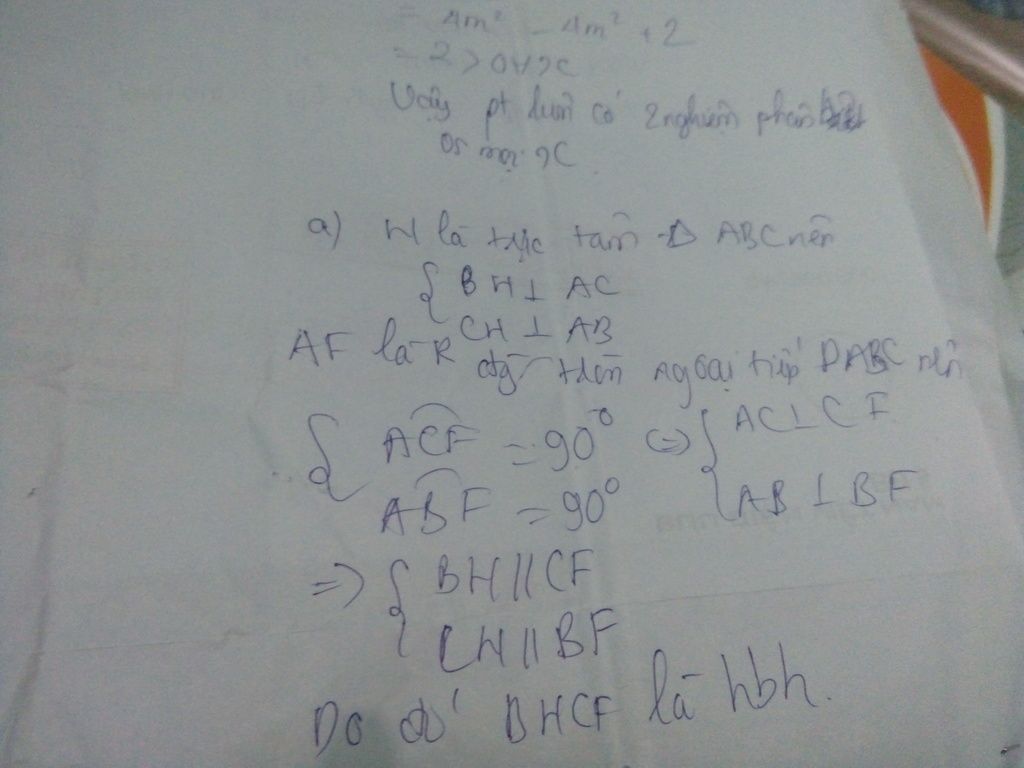 = 4m² - 4m² + 2
= 2 > 0 ∀ x
Vậy pt luôn có 2 nghiệm phân biệt
với mọi x
a) H là trực tâm Δ ABC nên
{ BH ⊥ AC
CH ⊥ AB
AF là R đg tròn ngoại tiếp ΔABC nên
{ ACF = 90° <=> { AC ⊥ CF
ABF = 90° AB ⊥ BF
=> { BH // CF
CH // BF
Do đó BHCF là hbh.